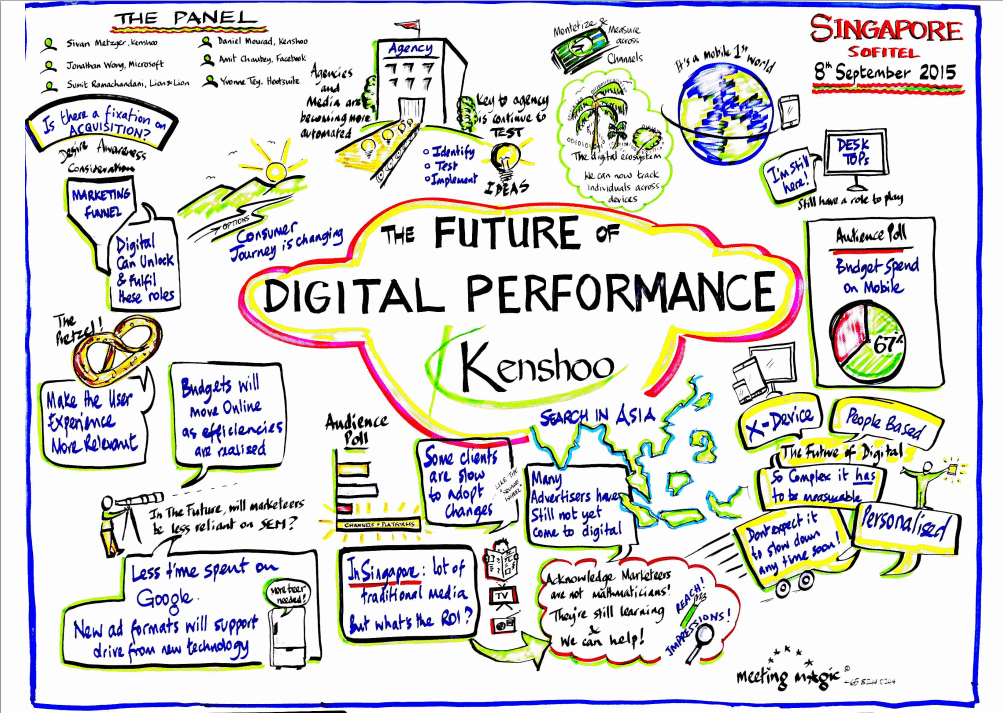 THE PANEL
Sivan Metzger, Kenshoo
Daniel Mourad, Kenshoo
Jonathan Wong, Microsoft
Amit Chaubey, Facebook
Sumit Ramachandani, Lion & Lion
Yvonne Tey, Hootsuite
SINGAPORE
SOFITEL
8th September 2015
Is there a fixation on
ACQUISITION?
Desire Awareness
Consideration
MARKETING
FUNNEL
Digital
Can Unlock
& Fulfil
these roles
OPTIONS
Consumer
Journey is changing
Agency
Agencies
and
Media are
becoming more
automated
Key to agency
is continue to
TEST
Identify
Test
Implement
IDEAS
Monetize &
Measure
across
Channels
The digital ecosystem
We can now track
individuals across
devices
It's a mobile 1st world
I'm still
here!
DESK
TOPs
Still have a role to play
THE FUTURE OF
DIGITAL PERFORMANCE
Kenshoo
Audience Poll
Budget Spend
on Mobile
67%
The
Pretzel!
Make the User
Experience
More Relevant
Budgets will
move Online
as efficiencies
are realised
In The Future, will marketeers
be less reliant on SEM?
Less time spent on
Google.
New ad formats will support
drive from new technology
More beer
needed!
Audience
Poll
CHANNELS + PLATFORMS
Some clients
are slow
to adopt
Changes
LIKE THE
SQUARE
WHEEL
SEARCH IN ASIA
Many
Advertisers have
Still not yet
come to digital
In Singapore: lot of
traditional media
But what's the ROI?
TV
Acknowledge Marketeers
are not mathmaticians!
They're still learning
&
We can help!
REACH!
IMPRESSIONS!
X-Device
People Based
The Future of Digital
So Complex it has
to be measurable
Personalised
Dont expect it
to slow down
any time soon!
meeting magic